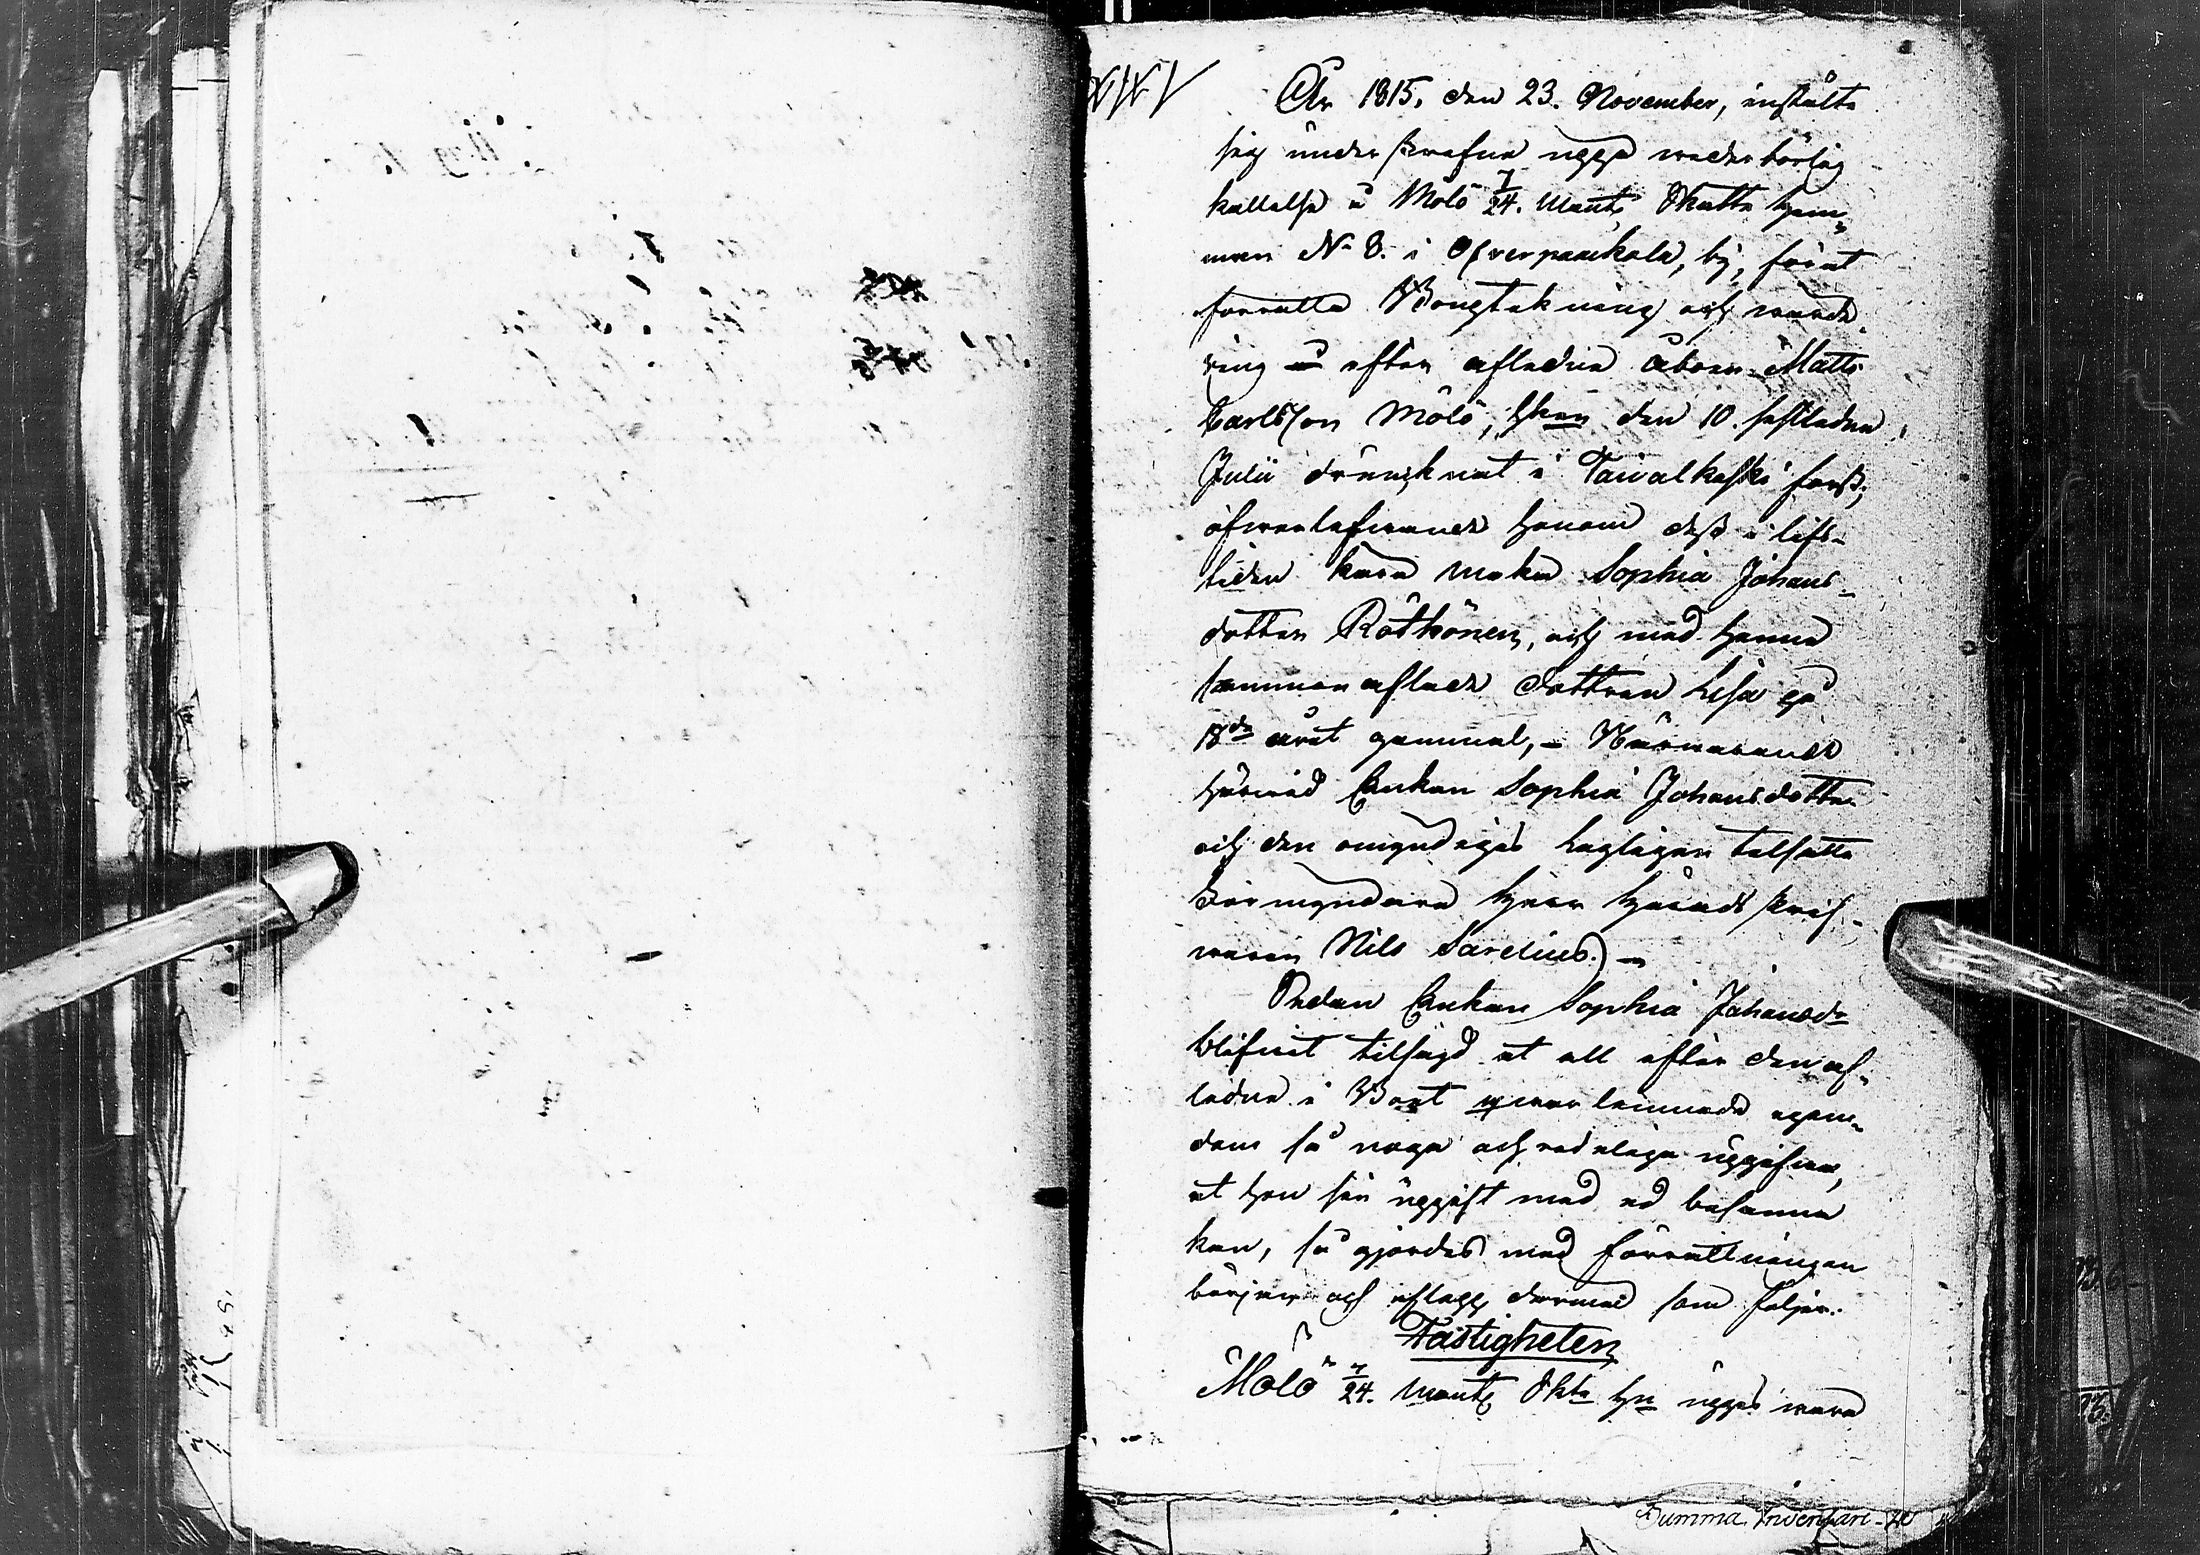 År 1815, den 23. November, instälte
sig under skrefne uppå wederbörlig
kallelse å Mölö 7/24. Mant. Skatte hem„
man No 8. i Öfverpaackola, by, för at
förrätta Bougtekning och wärde„
ring efter aflidne Åboen Matts
Carlsson Mölö, hken den 10. sistledne
Julii drunknat i Taivalkoski fors;
öfwerlefwande honom dess i lifs-
tiden kära maka Sophia Johans-
dotter Röthönen, och med henne
samman aflade dottren Lisa på
18de året gammal, – Närwarande
härwid Enkan Sophia Johansdotter
och den omyndigas Lagligen tilsatte
Förmyndare Herr Härads skrif-
waren Nils Sarelius. –
Sedan Enkan Sophia Johansdr
blifwit tilsagd at all efter den af„
ledne i Boet qwarlemnade egen„
dom så noga och redeliga uppgifwa,
at hon sin uppgift med ed besanna
kan, så gjordes med förrättningen
början och aflopp dermed som följer.
Fastigheten
Mölö 7/24. Mant. Skte hn uppgs wara
Summa Inventarii